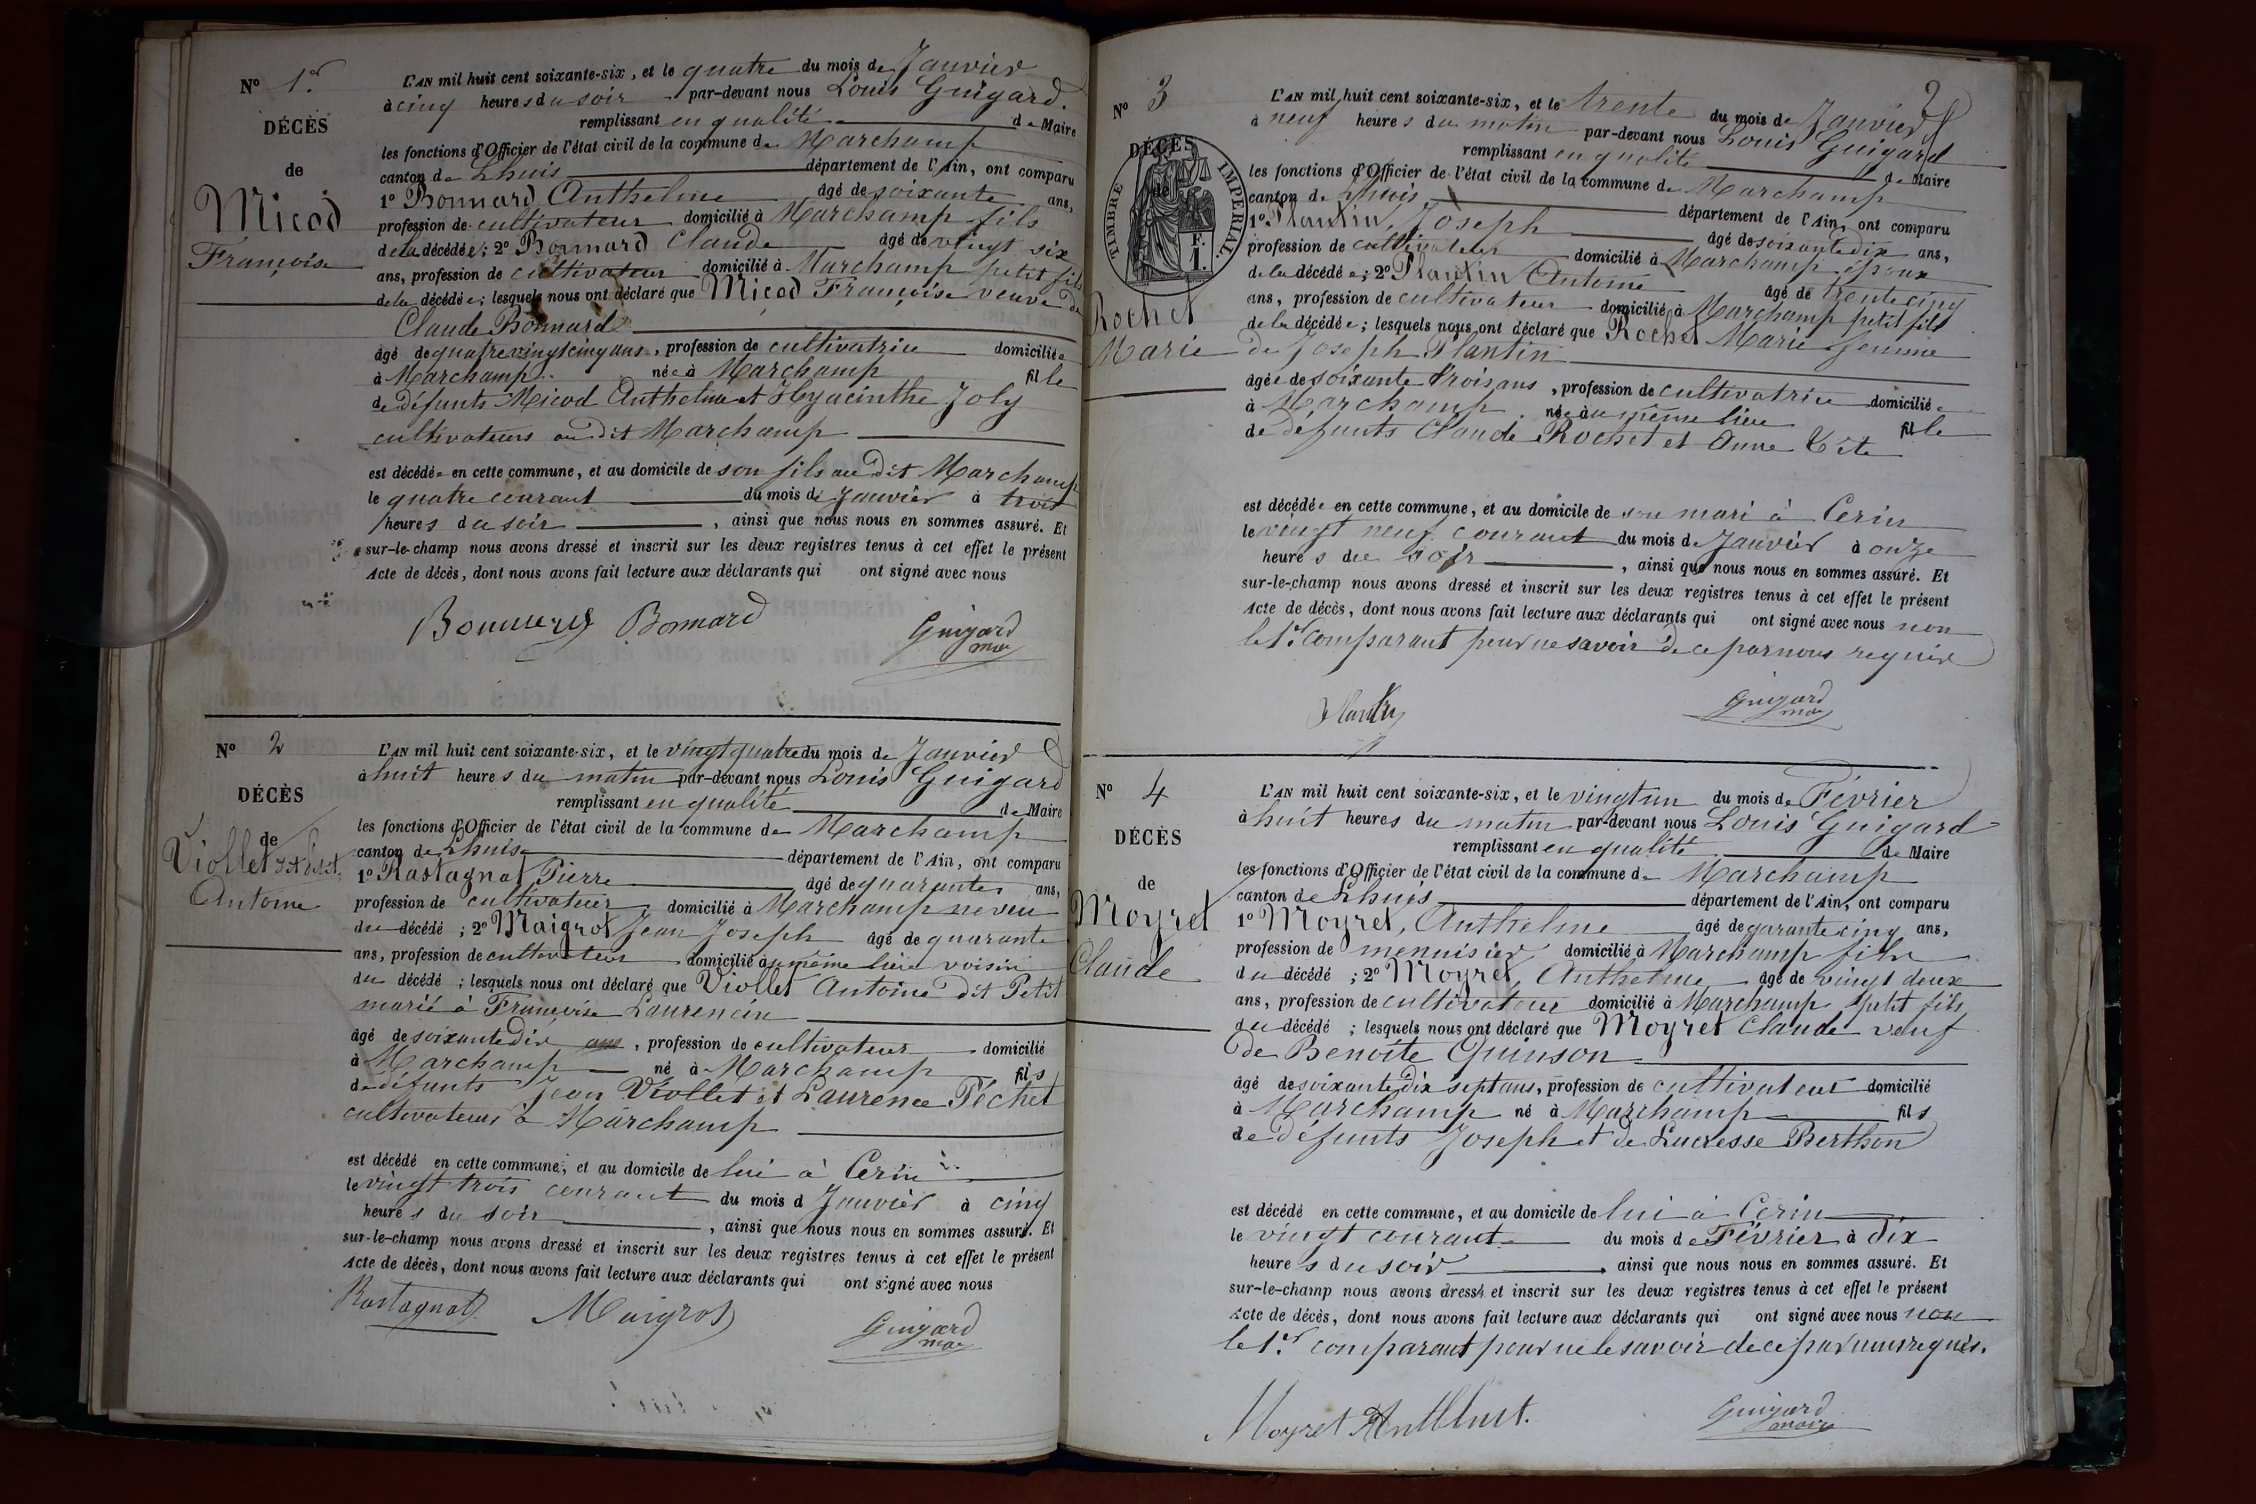 No 1er
DÉCÈS
de
Micod
Françoise
L'AN mil huit cent soixante-six, et le quatre du mois de Janvier
à cinq heures du soir par-devant nous Louis Guigard
remplissant en qualité de Maire
les fonctions d'Officier de l'état civil de la commune de Marchamp
canton de Lhuis département de l'Ain, ont comparu
1o Bonnard Anthelme âgé de soixante ans,
profession de cultivateur domicilié à Marchamp fils
de la décédée; 2o Bonnard Claude âgé de vingt six
ans, profession de cultivateur domicilié à Marchamp petit fils
de la décédée; lesquels nous ont déclaré que Micod Françoise veuve de
Claude Bonnard
âgé de quatre vingt cinq ans, profession de cultivatrice domiciliée
à Marchamp née à Marchamp fille
de défunts Micod Anthelme et Hyacinthe Joly
cultivateurs au dit Marchamp
est décédée en cette commune, et au domicile de son fils au dit Marchamp
le quatre courant du mois de Janvier à trois
heures du soir, ainsi que nous nous en sommes assuré. Et
sur-le-champ nous avons dressé et inscrit sur les deux registres tenus à cet effet le présent
Acte de décès, dont nous avons fait lecture aux déclarants qui ont signé avec nous
Bonnard Guigard
maire
No 2
DÉCÈS
de
Viollet dit Petit
Antoine
L'AN mil huit cent soixante-six, et le vingt quatre du mois de Janvier
à huit heures du matin par-devant nous Louis Guigard
remplissant en qualité de Maire
les fonctions d'Officier de l'état civil de la commune de Marchamp
canton de Lhuis département de l'Ain, ont comparu
1o Rastagnat Pierre âgé de quarante ans,
profession de cultivateur domicilié à Marchamp neveu
du décédé; 2o Maigrot Jean Joseph âgé de quarante
ans, profession de cultivateur domicilié au même lieu voisin
du décédé; lesquels nous ont déclaré que Viollet Antoine dit Petit
marié à Françoise Laurencin
âgé de soixante dix ans, profession de cultivateur domicilié
à Marchamp né à Marchamp fils
de défunts Jean Viollet et Laurence Péchet
cultivateurs à Marchamp
est décédé en cette commune, et au domicile de lui à Cerin
le vingt trois courant du mois d Janvier à cinq
heures du soir, ainsi que nous nous en sommes assuré. Et
sur-le-champ nous avons dressé et inscrit sur les deux registres tenus à cet effet le présent
Acte de décès, dont nous avons fait lecture aux déclarants qui ont signé avec nous
Rastagnat Maigrot Guigard
maire
2
No 3
DÉCÈS
de
TIMBRE IMPÉRIAL
F.
1.
Rochet
Marie
L'AN mil huit cent soixante-six, et le trente du mois de Janvier
à neuf heures du matin par-devant nous Louis Guigard
remplissant en qualité de Maire
les fonctions d'Officier de l'état civil de la commune de Marchamp
canton de Lhuis département de l'Ain, ont comparu
1o Plantin, Joseph âgé de soixante dix ans,
profession de cultivateur domicilié à Marchamp époux
de la décédée; 2o Plantin Antoine âgé de trente cinq
ans, profession de cultivateur domicilié à Marchamp petit fils
de la décédée; lesquels nous ont déclaré que Rochet Marie femme
de Joseph Plantin
âgée de soixante trois ans, profession de cultivatrice domiciliée
à Marchamp née au même lieu fille
de défunts Claude Rochet et Anne Tête
est décédée en cette commune, et au domicile de son mari à Cerin
le vingt neuf courant du mois de Janvier à onze
heures du soir, ainsi que nous nous en sommes assuré. Et
sur-le-champ nous avons dressé et inscrit sur les deux registres tenus à cet effet le présent
Acte de décès, dont nous avons fait lecture aux déclarants qui ont signé avec nous non
le 1er comparant pour ne savoir de ce par nous requis
Guigard
maire
No 4
DÉCÈS
de
Moyret
Claude
L'AN mil huit cent soixante-six, et le vingt un du mois de Février
à huit heures du matin par-devant nous Louis Guigard
remplissant en qualité de Maire
les fonctions d'Officier de l'état civil de la commune de Marchamp
canton de Lhuis département de l'Ain, ont comparu
1o Moyret, Anthelme âgé de garante cinq ans,
profession de menuisier domicilié à Marchamp fils
du décédé; 2o Moyret, Anthelme âgé de vingt deux
ans, profession de cultivateur domicilié à Marchamp petit fils
du décédé; lesquels nous ont déclaré que Moyret Claude veuf
de Benoite Quinson
âgé de soixante dix sept ans, profession de cultivateur domicilié
à Marchamp né à Marchamp fils
de défunts Joseph et de Lucresse Berthon
est décédé en cette commune, et au domicile de lui à Cerin
le vingt courant du mois de Février à dix
heures du soir, ainsi que nous nous en sommes assuré. Et
sur-le-champ nous avons dressé et inscrit sur les deux registres tenus à cet effet le présent
Acte de décès, dont nous avons fait lecture aux déclarants qui ont signé avec nous non
le 1er comparant pour ne le savoir de ce par nous requis.
Moyret Guigard
maire